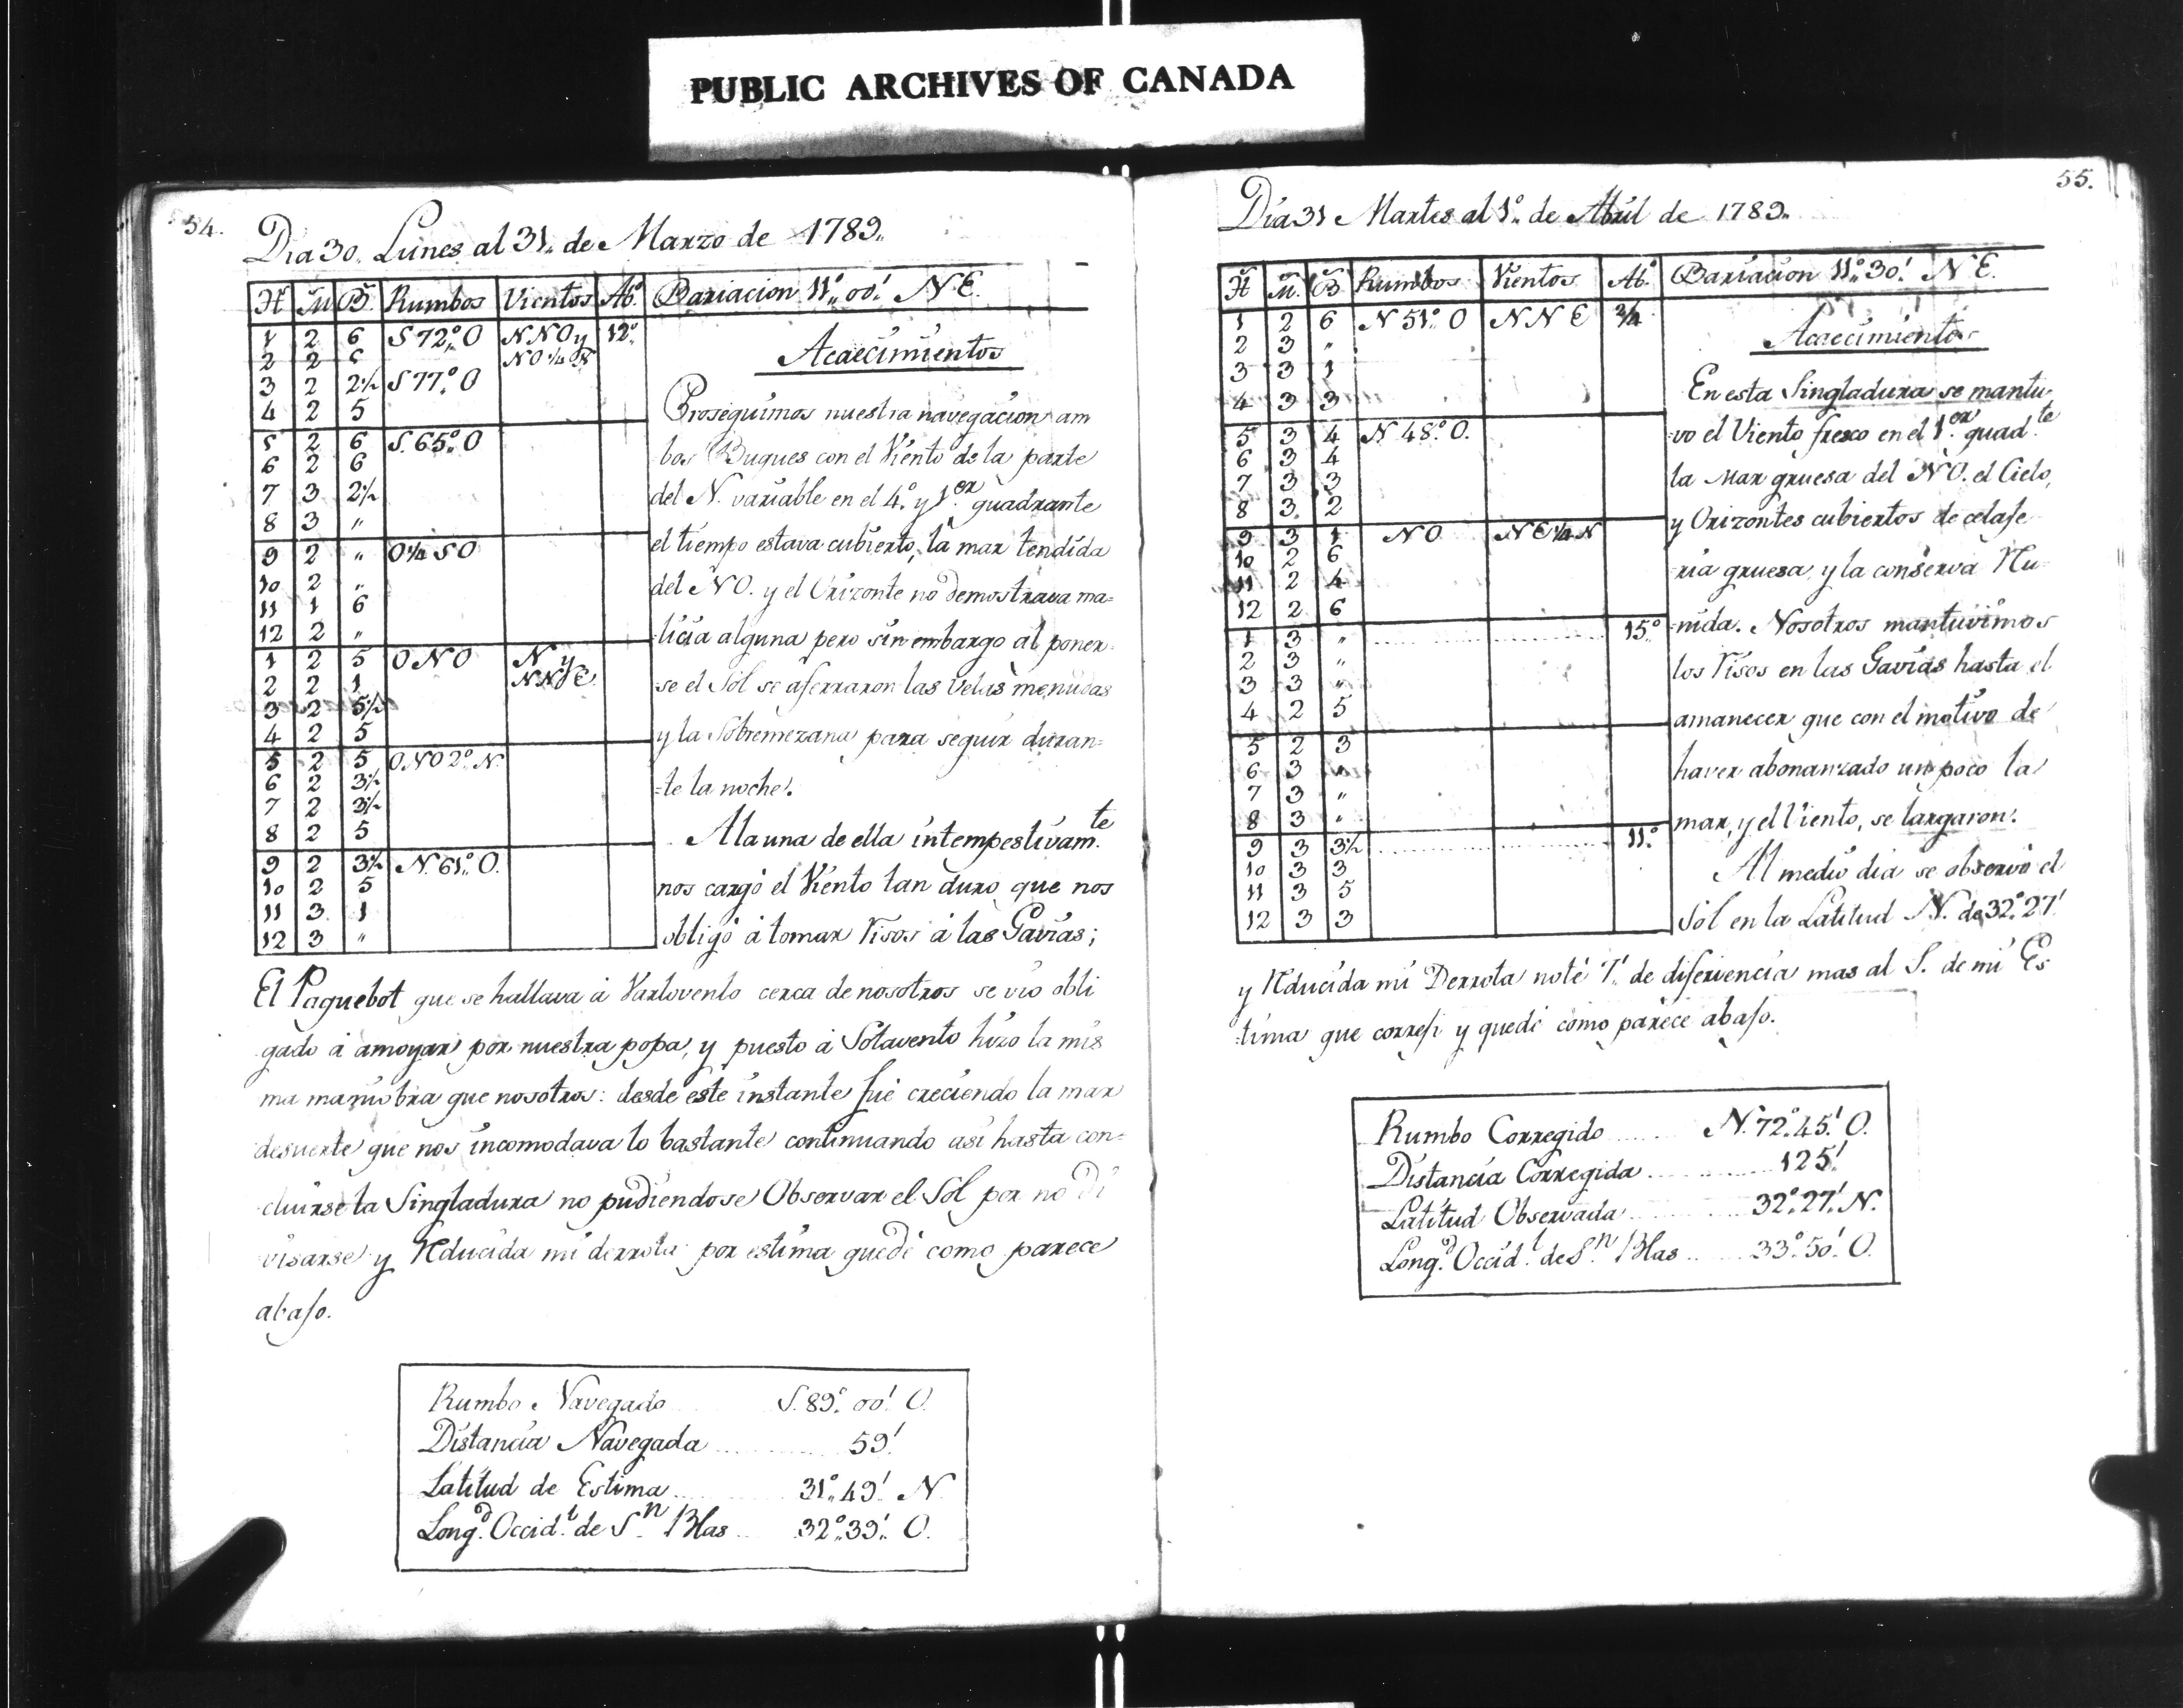 PUBLIC ARCHIVES OF CANADA
54.
Dia 30,, Lunes al 31,, de Marzo de 1789,,
H M B. Rumbos Vientos Ab.º Bariacion 11º,, 00' N E.
1 2 6 S 72,,º O NNO y 12º
2 2 6 NO ¼ N
3 2 2½ S 77,,º O
4 2 5
5 2 6 S. 65,,º O
6 2 6
7 3 2½
8 3 "
9 2 " O ¼ S O
10 2 "
11 1 6
12 2 "
1 2 5 O N O N y
2 2 1 NNE.
3 2 5½
4 2 5
5 2 5 ONO 2º,, N.
6 2 3½
7 2 3½
8 2 5
9 2 3½ N. 61,,º O.
10 2 5
11 3 1
12 3 "
Acaecimientos
Proseguimos nuestra navegacion am
bos Buques con el Viento de la parte
del N. variable en el 4.º y 1.er quadrante
el tiempo estava cubierto, la mar tendida
del NO. y el Orizonte no demostrava ma=
licia alguna pero sin embargo al poner
se el Sol se aferraron las velas menudas
y la Sobremezana para seguir duran=
=te la noche.
A la una de ella intempestivam.te
nos cargó el Viento tan duro, que nos
obligó á tomar Risos á las Gavias;
El Paquebot que se hallava á Varlovento cerca de nosotros se vio obli
gado á amoyar por nuestra popa, y puesto á Sotavento hizo la mis
ma maniobra que nosotros: desde este instante fué creciendo la mar
desuerte que nos incomodava lo bastante continuando asi hasta con=
cluirse la Singladura no pudiendose Observar el Sol por no di
visarse y Rducida mi derrota por estima quedé como parece
abajo.
Rumbo Navegado S. 89º,, 00' O.
Distancia Navegada 59'
Latitud de Estima 31º,, 49' N
Long.d Occid.t de S.n Blas 32º,, 39' O.
55.
Dia 31 Martes al 1º,, de Abril de 1789,,
H M. B Rumbos Vientos Ab.º Bariacion 11º,, 30' N E.
1 2 6 N 51,,º O N N E ¾
2 3 "
3 3 1
4 3 3
5 3 4 N 48,,º O.
6 3 4
7 3 3
8 3 2
9 3 1 NO NE ¼ N
10 2 6
11 2 4
12 2 6
1 3 " 15º
2 3 "
3 3 "
4 2 5
5 2 3
6 3 "
7 3 "
8 3 "
9 3 3½ 11º
10 3 3
11 3 5
12 3 3
Acaecimientos
En esta Singladura se mantu
=vo el Viento fresco en el 1.er quad.te
la Mar gruesa del NO. el Cielo,
y Orizontes cubiertos de celaje
ria gruesa, y la conserva Ru
=nida. Nosotros mantuvimos
los Risos en las Gavias hasta el
amanecer que con el motivo de
haver abonanzado un poco la
mar, y el Viento, se largaron.
Al medio dia se observó el
Sol en la Latitud N. de 32º,, 27'
y Rducida mi Derrota noté 7' de diferiencia mas al S. de mi Es
=tima que correji y quedé como parece abajo.
Rumbo Corregido N. 72º,, 45' O.
Distancia Corregida 125'
Latitud Observada 32º,, 27' N.
Long.d Occid.t de S.n Blas 33º,, 50' O.